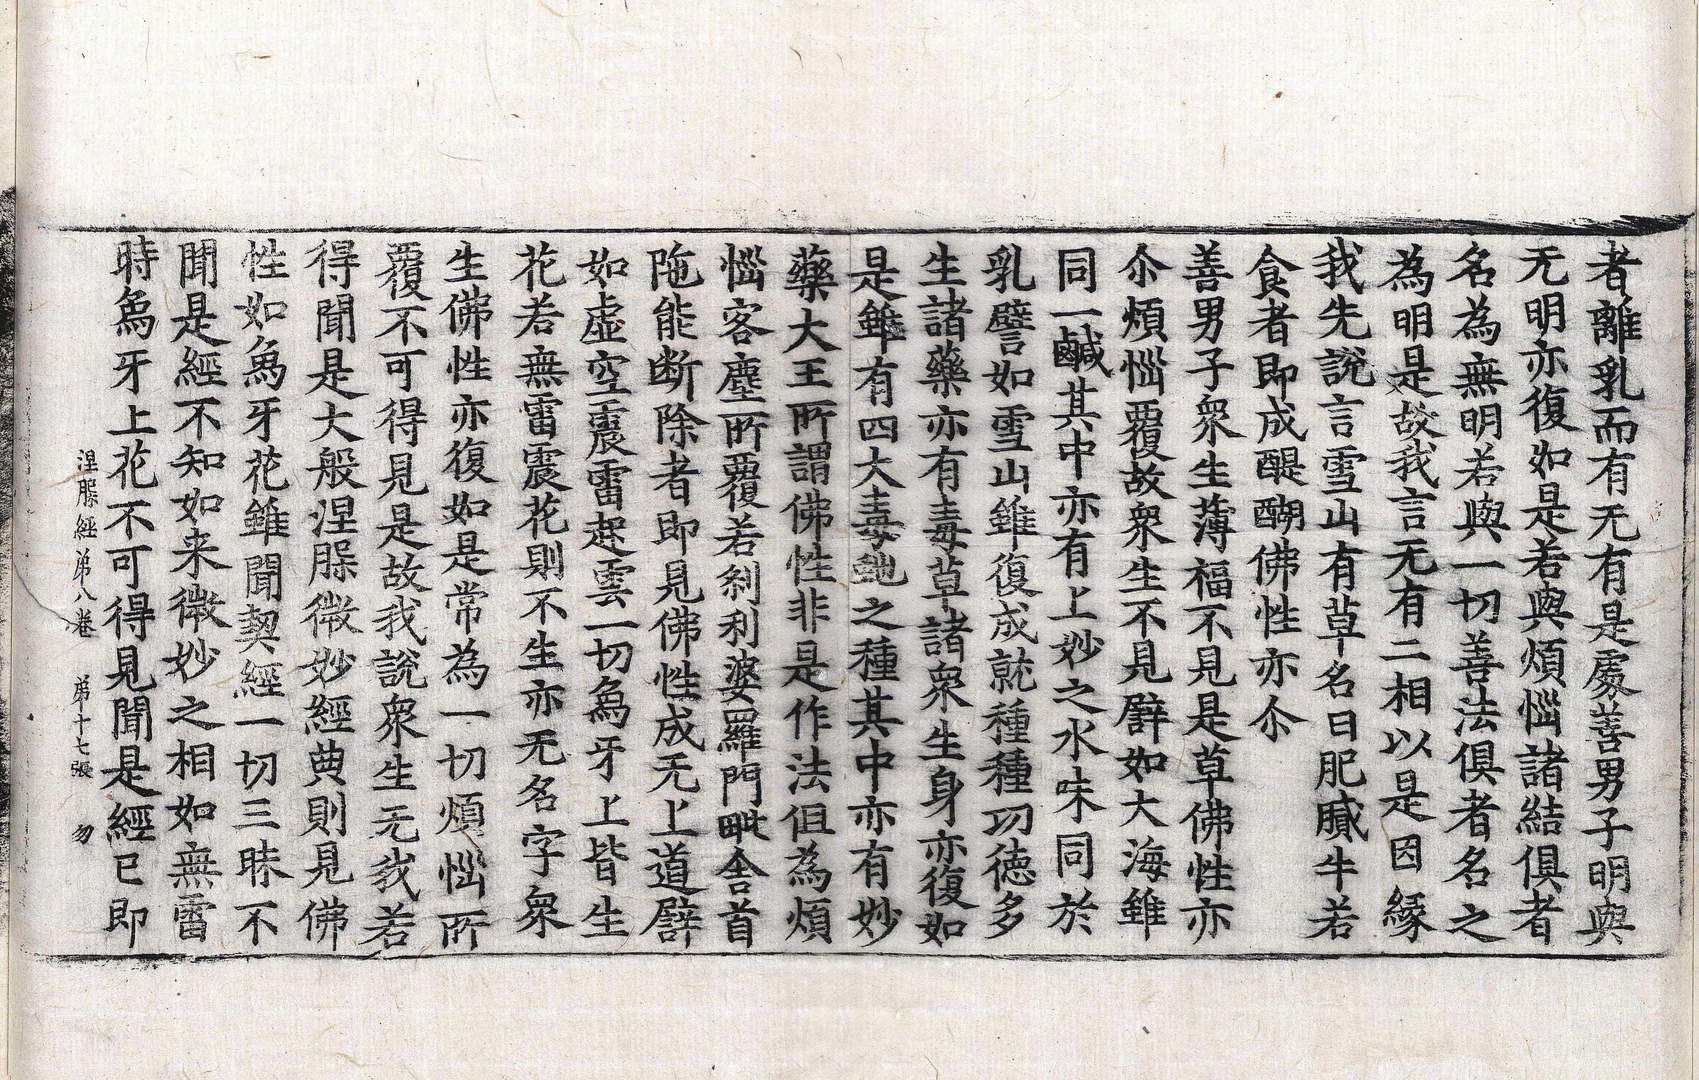 者離乳而有无有是處善男子明與
无明亦復如是若與煩惱諸結俱者
名為無明若與一切善法俱者名之
為明是故我言无有二相以是因緣
我先說言雪山有草名曰肥膩牛若
食者即成醍醐佛性亦尒
善男子衆生薄福不見是草佛性亦
尒煩惱覆故衆生不見譬如大海雖
同一鹹其中亦有上妙之水味同於
乳譬如雪山雖復成就種種功德多
生諸藥亦有毒草諸衆生身亦復如
是雖有四大毒虵之種其中亦有妙
藥大王所謂佛性非是作法但為煩
惱客塵所覆若刹利婆羅門毗舍首
陁能斷除者即見佛性成无上道譬
如虛空震雷起雲一切烏牙上皆生
花若無雷震花則不生亦无名字衆
生佛性亦復如是常為一切煩惱所
覆不可得見是故我說衆生无我若
得聞是大般涅槃微妙經典則見佛
性如烏牙花雖聞契經一切三昧不
聞是經不知如来微妙之相如無雷
時烏牙上花不可得見聞是經已即
涅槃經 第八卷 第十七張 勿